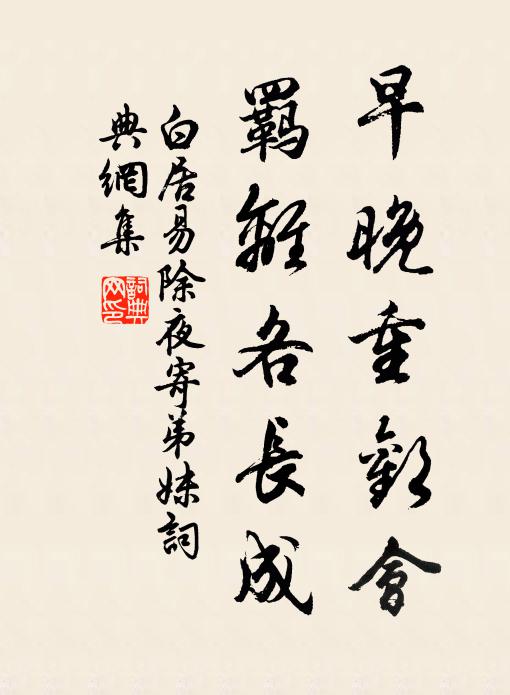 早晚重歡會
羈離各長成
白居易除夜寄弟妹詞
典網集
詞典
网印